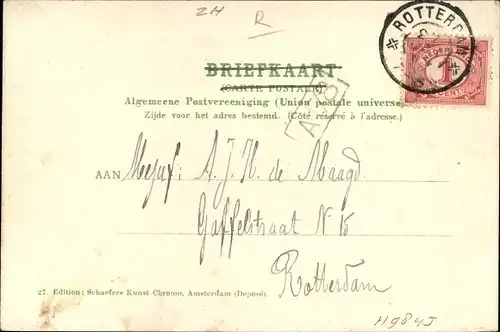 2H R
ROTTERDAM
NEDERLAND
1
CENT
BRIEFKAART
(CARTE POSTALE)
Algemeene Postvereeniging (Union postale universelle)
Zijde voor het adres bestemd. (Côté réservé à l'adresse.)
AAN Mejuf: A. J. H. de Maagd.
Gaffelstraat N 15
Rotterdam
27. Edition: Schaefers Kunst-Chromo, Amsterdam (Deposé).
H984J